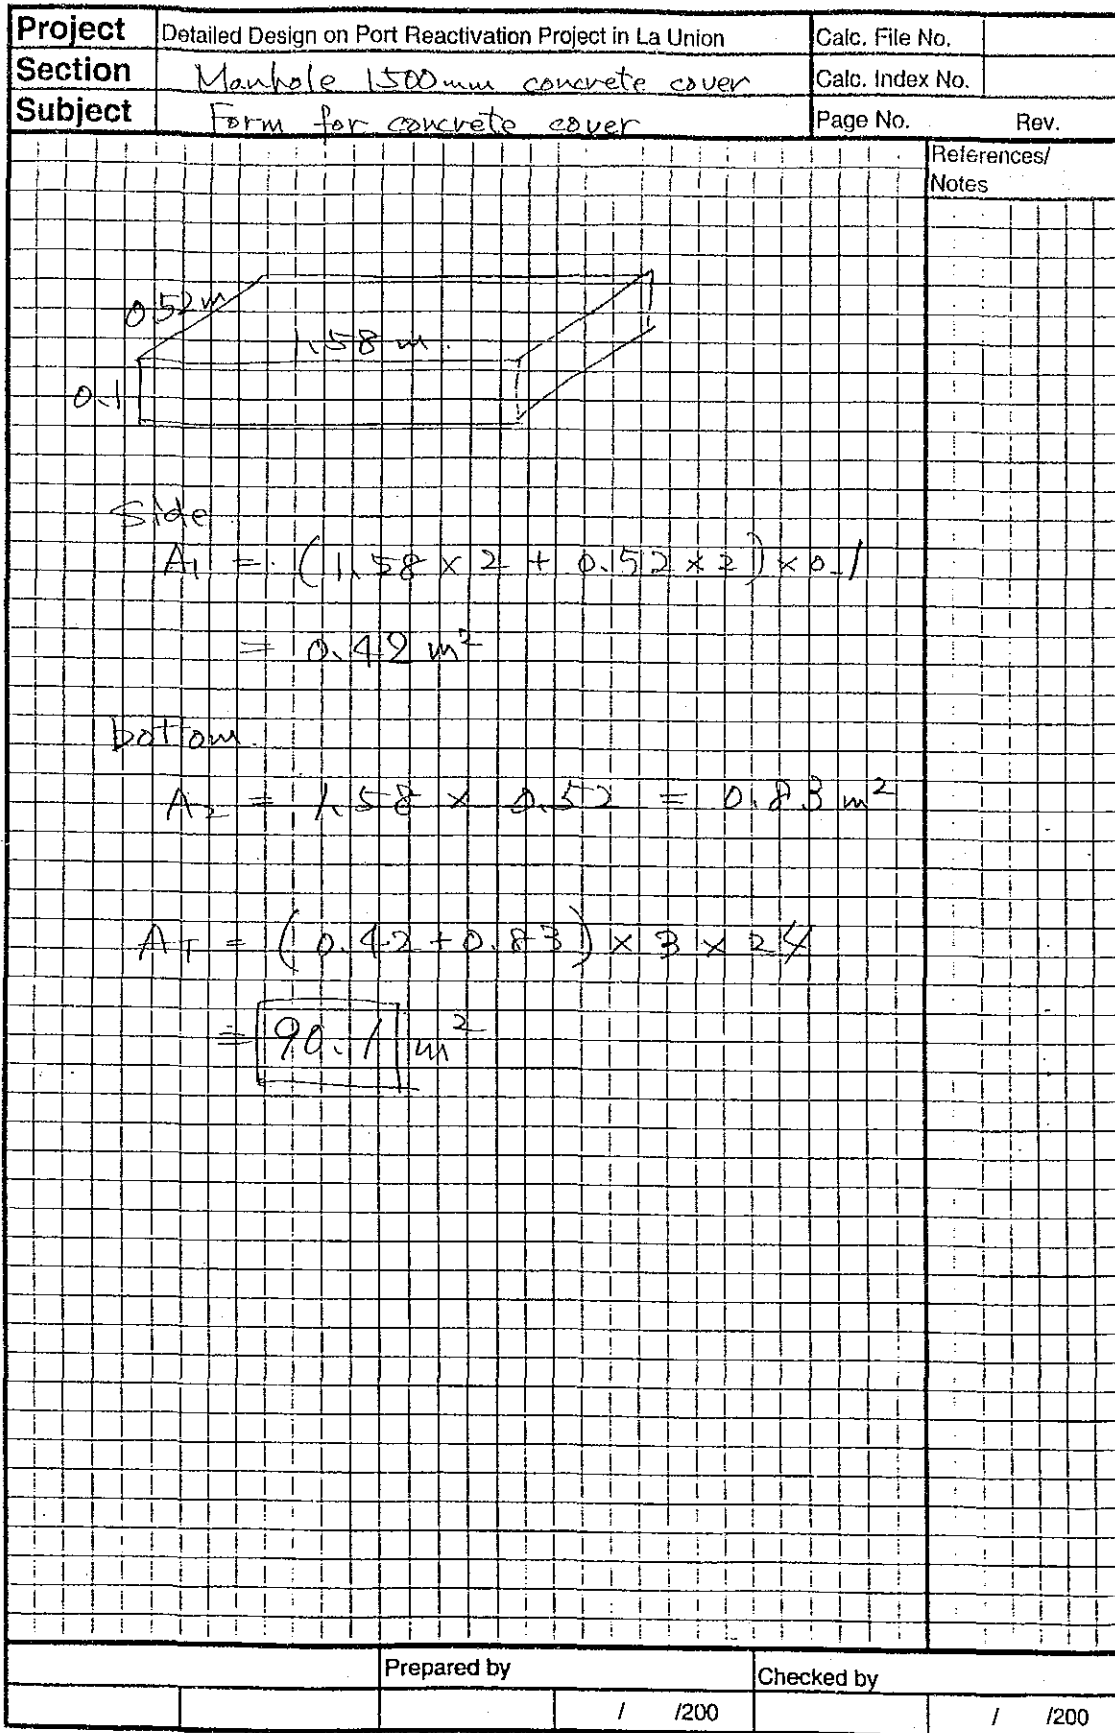 Project Detailed Design on Port Reactivation Project in La Union Calc. File No.
Section Manhole 1500mm concrete cover Calc. Index No.
Subject Form for concrete cover Page No. Rev.
References/
Notes
0.52m
1.58 m.
0.1
Side
A1 = (1.58 × 2 + 0.52 × 2) × 0.1
= 0.42 m²
bottom
A2 = 1.58 × 0.52 = 0.83 m²
AT = (0.42 + 0.83) × 3 × 24
= 90.1 m²
Prepared by Checked by
/ /200 / /200